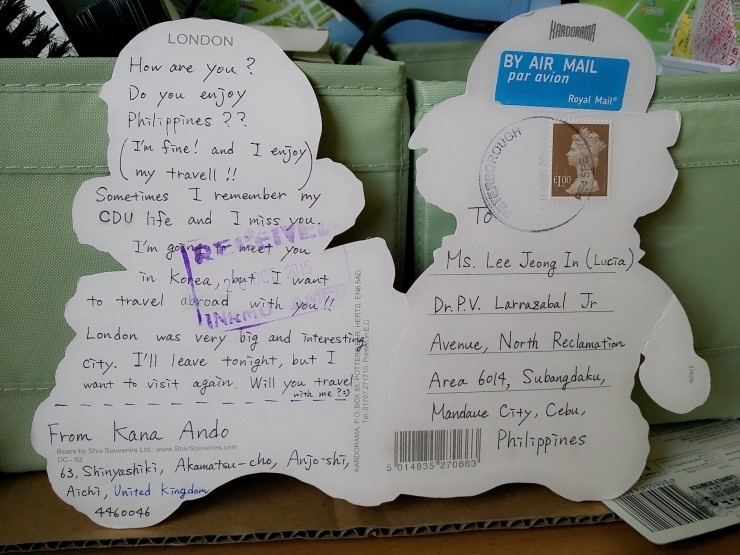 LONDON
How are you?
Do you enjoy
Philippines??
(I'm fine! and I enjoy
my travell!!)
Sometimes I remember my
CDU life and I miss you.
I'm going to meet you
in Korea, but I want
to travel abroad with you!!
London was very big and interesting
city. I'll leave tonight, but I
want to visit again. Will you travel
with me?:)
From Kana Ando
Bears by Shiv Souvenirs Ltd.: www.ShivSouvenirs.com
DC - 92
63, Shinyashiki, Akamatsu-cho, Anjo-shi,
Aichi, United Kingdom
4460046
RECEIVED
OCT 2015
KARDORAMA P.O. BOX 85, POTTERS BAR, HERTS. EN6 5AD
Tel: 01707 271710. Printed in E.C.
KARDORAMA
BY AIR MAIL
par avion
Royal Mail®
PETERBOROUGH
£1.00
To
Ms. Lee Jeong In (Lucia)
Dr. P.V. Larrazabal Jr
Avenue, North Reclamation
Area 6014, Subangdaku,
Mandaue City, Cebu,
Philippines
5 014835 270663